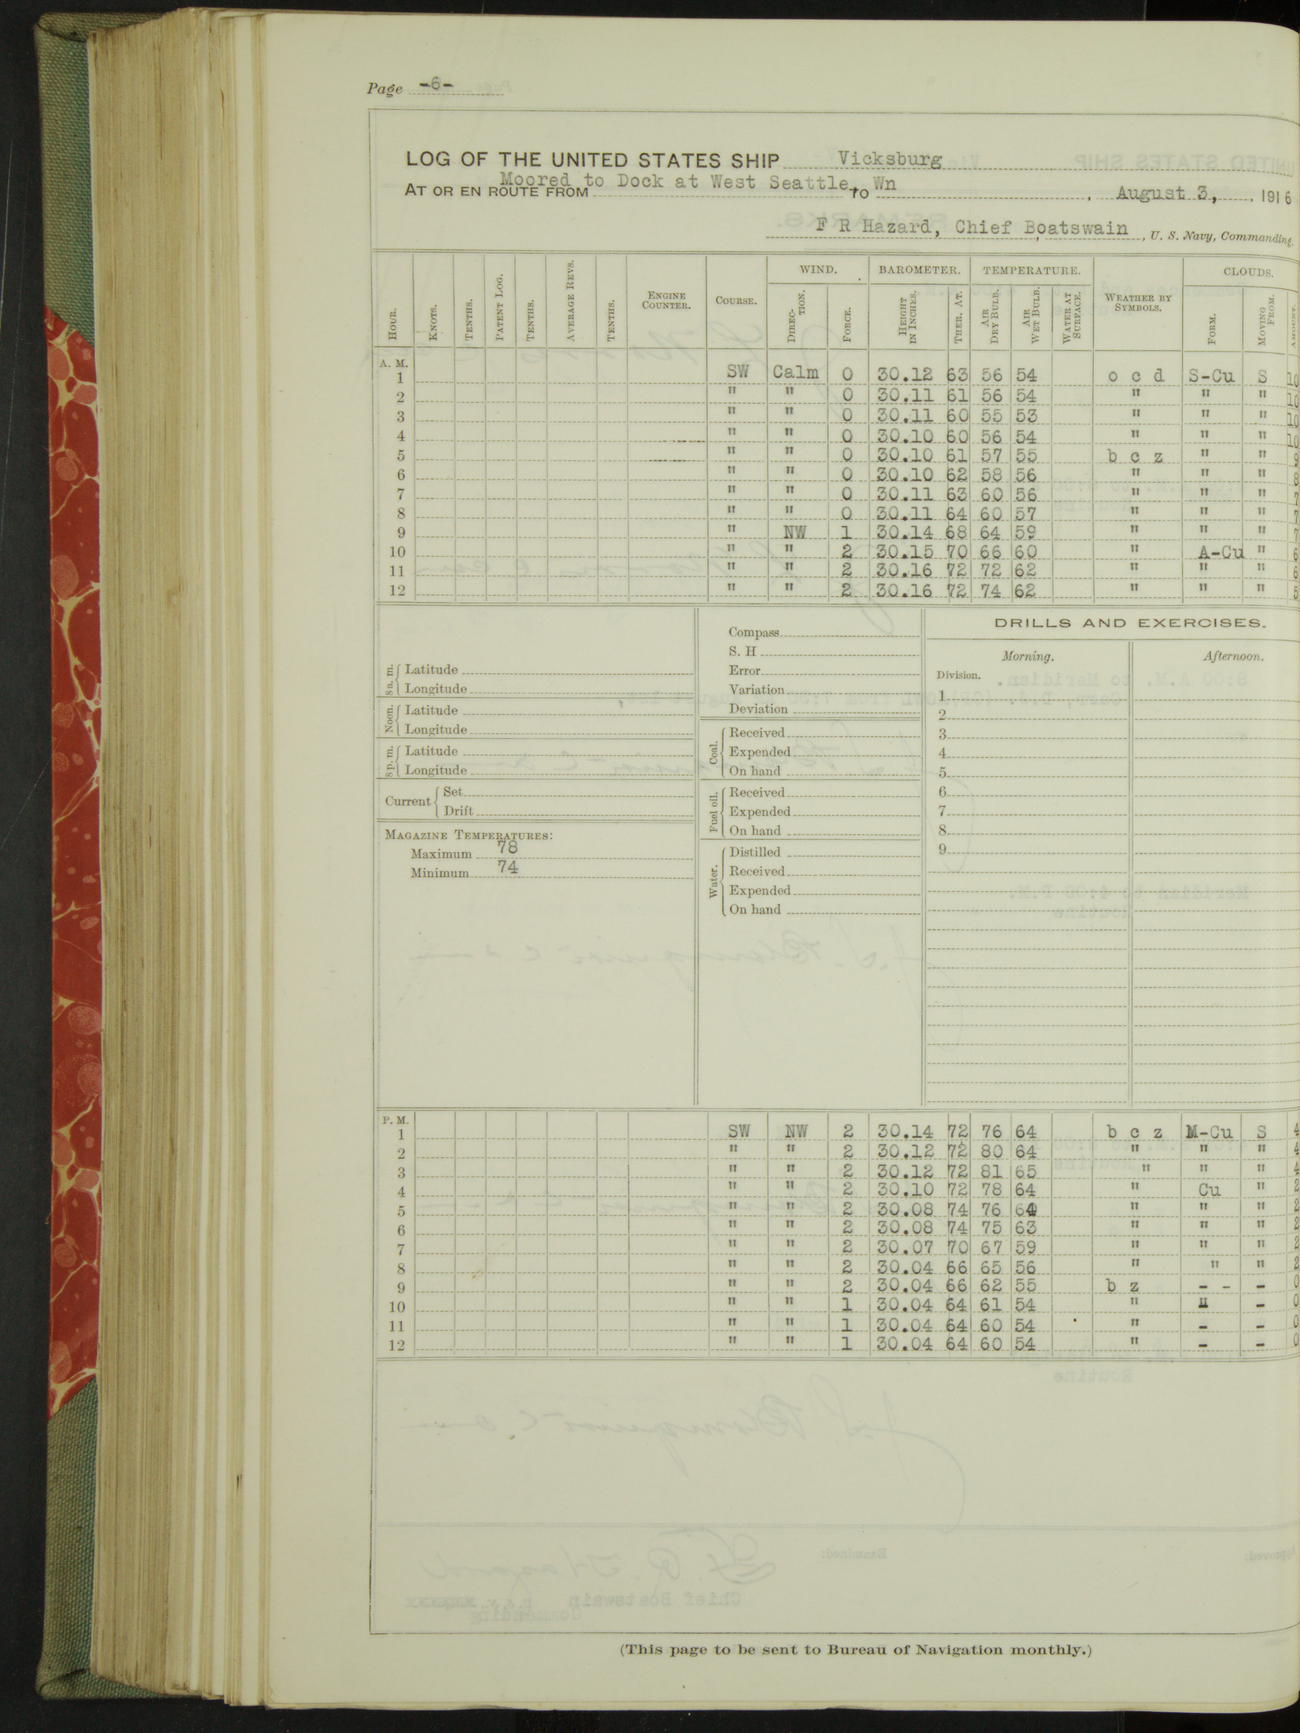 Page -6-
LOG OF THE UNITED STATES SHIP Vicksburg
AT OR EN ROUTE FROM Moored to Dock at West Seattle, TO Wn , August 3, , 1916
F R Hazard, Chief Boatswain , U. S. Navy, Commanding.
HOUR. KNOTS. TENTHS. PATENT LOG. TENTHS. AVERAGE REVS. TENTHS. ENGINE COUNTER. COURSE. WIND. DIRECTION. FORCE. BAROMETER. HEIGHT IN INCHES. THER. AT. TEMPERATURE. AIR DRY BULB. AIR WET BULB. WATER AT SURFACE. WEATHER BY SYMBOLS. CLOUDS. FORM. MOVING FROM. AMOUNT.
A. M.
1 SW Calm 0 30.12 63 56 54 o c d S-Cu S 10
2 " " 0 30.11 61 56 54 " " " 10
3 " " 0 30.11 60 55 53 " " " 10
4 " " 0 30.10 60 56 54 " " " 10
5 " " 0 30.10 61 57 55 b c z " " 9
6 " " 0 30.10 62 58 56 " " " 8
7 " " 0 30.11 63 60 56 " " " 7
8 " " 0 30.11 64 60 57 " " " 7
9 " NW 1 30.14 68 64 59 " " " 7
10 " " 2 30.15 70 66 60 " A-Cu " 6
11 " " 2 30.16 72 72 62 " " " 6
12 " " 2 30.16 72 74 62 " " " 5
8 a. m. Latitude
Longitude
Noon. Latitude
Longitude
8 p. m. Latitude
Longitude
Current Set
Drift
MAGAZINE TEMPERATURES:
Maximum 78
Minimum 74
Compass
S. H
Error
Variation
Deviation
Coal. Received
Expended
On hand
Fuel oil. Received
Expended
On hand
Water. Distilled
Received
Expended
On hand
DRILLS AND EXERCISES.
Morning. Afternoon.
Division.
1
2
3
4
5
6
7
8
9
P. M.
1 SW NW 2 30.14 72 76 64 b c z M-Cu S 4
2 " " 2 30.12 72 80 64 " " " 4
3 " " 2 30.12 72 81 65 " " " 4
4 " " 2 30.10 72 78 64 " Cu " 2
5 " " 2 30.08 74 76 64 " " " 2
6 " " 2 30.08 74 75 63 " " " 2
7 " " 2 30.07 70 67 59 " " " 2
8 " " 2 30.04 66 65 56 " " " 2
9 " " 2 30.04 66 62 55 b z - - - 0
10 " " 1 30.04 64 61 54 " " - 0
11 " " 1 30.04 64 60 54 " - - 0
12 " " 1 30.04 64 60 54 " - - 0
(This page to be sent to Bureau of Navigation monthly.)